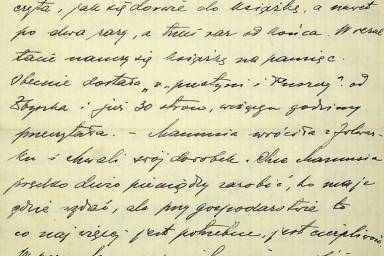 czyta, jak się dorwie do książki, a nawet
po dwa razy, a trzeci raz od końca. W rezul
tacie nauczy się książkę na pamięć.
Obecnie dostała „W pustyni i Puszczy" od
Zbyszka i już 30 stron, w ciągu godziny
przeczytała. – Mamusia wróciła z Folwar-
ku i chwali swój dorobek. Chce Mamusia
prędko dużo pieniędzy zarobić, bo ma je
gdzie wydać, ale przy gospodarstwie to
co najwięcej jest potrzebne, jest cierpliwość.